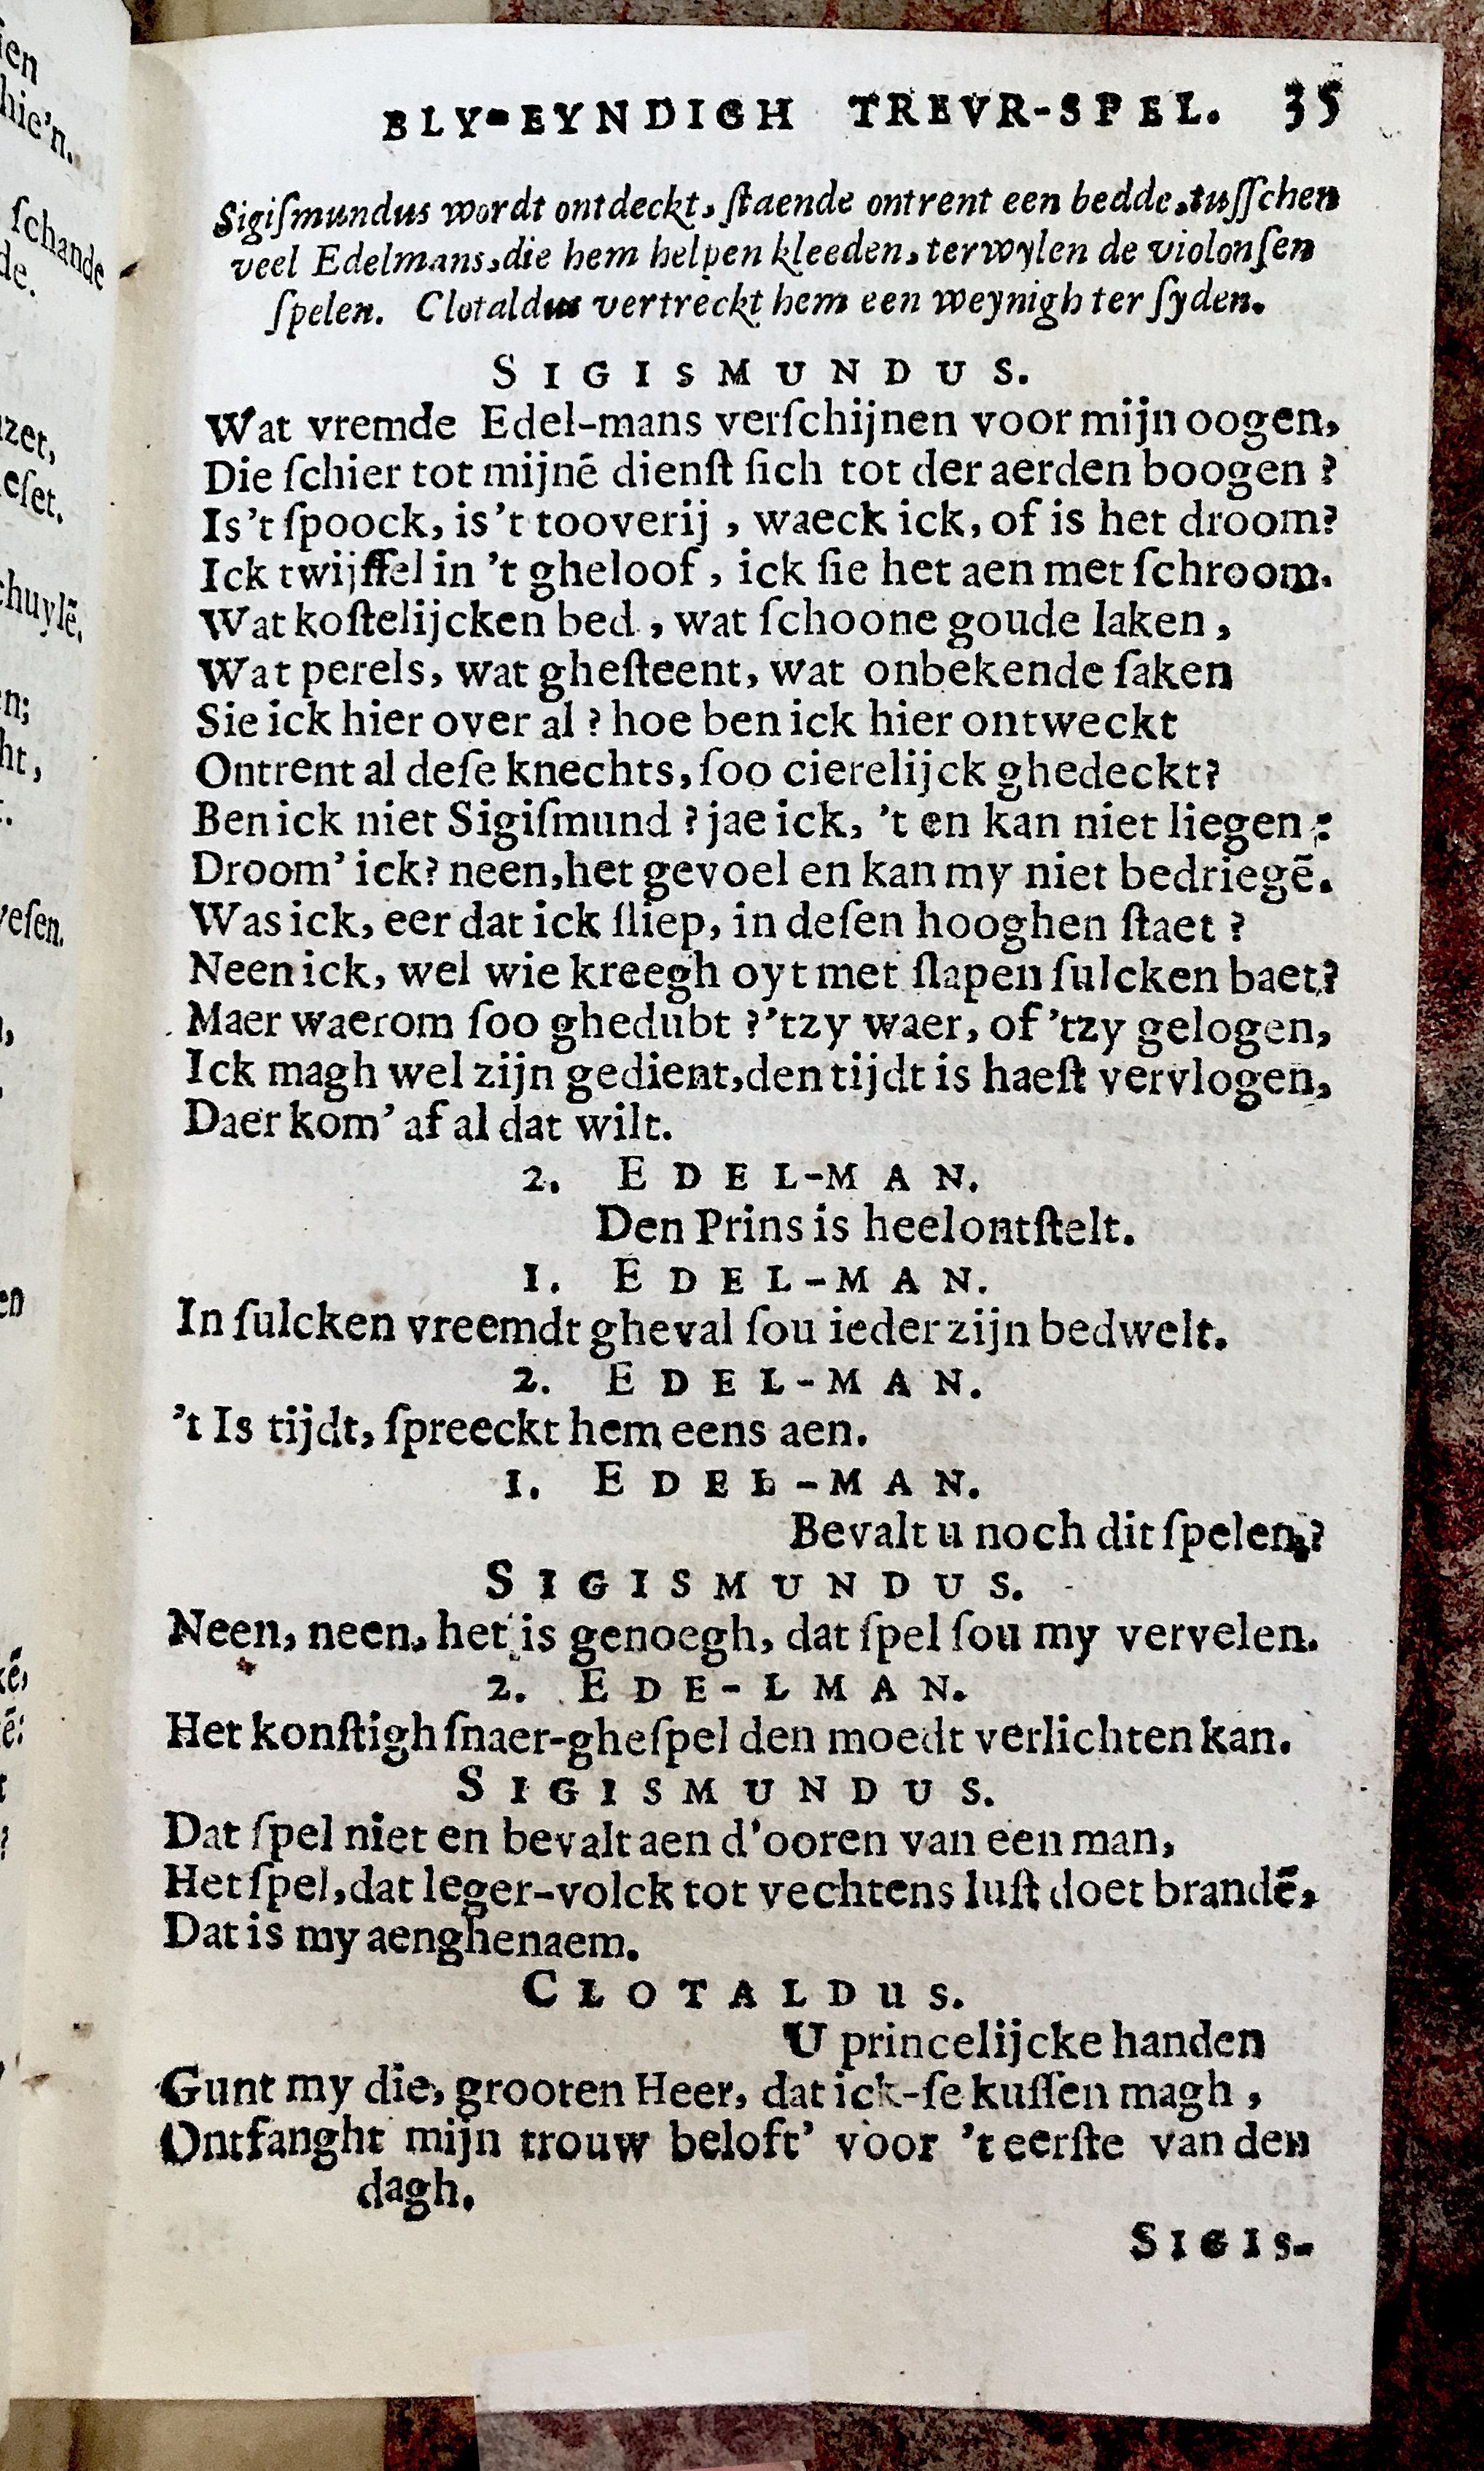 BLY-EYNDIGH TREVR-SPEL. 35
Sigiſmundus wordt ontdeckt, ſtaende ontrent een bedde, tuſſchen
veel Edelmans, die hem helpen kleeden, terwylen de violonſen
ſpelen. Clotaldus vertreckt hem een weynigh ter ſyden.
SIGISMUNDUS.
Wat vremde Edel-mans verſchijnen voor mijn oogen,
Die ſchier tot mijnē dienſt ſich tot der aerden boogen ?
Is't ſpoock, is't tooverij , waeck ick, of is het droom?
Ick twijffel in 't gheloof , ick ſie het aen met ſchroom.
Wat koſtelijcken bed , wat ſchoone goude laken ,
Wat perels, wat gheſteent, wat onbekende ſaken
Sie ick hier over al ? hoe ben ick hier ontweckt
Ontrent al deſe knechts, ſoo cierelijck ghedeckt?
Ben ick niet Sigiſmund ? jae ick, 't en kan niet liegen :
Droom' ick? neen, het gevoel en kan my niet bedriegē.
Was ick, eer dat ick ſliep, in deſen hooghen ſtaet ?
Neen ick, wel wie kreegh oyt met ſlapen ſulcken baet?
Maer waerom ſoo ghedubt ? 'tzy waer, of 'tzy gelogen,
Ick magh wel zijn gedient, den tijdt is haeſt vervlogen,
Daer kom' af al dat wilt.
2. EDEL-MAN.
Den Prins is heel ontſtelt.
1. EDEL-MAN.
In ſulcken vreemdt gheval ſou ieder zijn bedwelt.
2. EDEL-MAN.
't Is tijdt, ſpreeckt hem eens aen.
1. EDEL-MAN.
Bevalt u noch dit ſpelen?
SIGISMUNDUS.
Neen, neen, het is genoegh, dat ſpel ſou my vervelen.
2. EDE-LMAN.
Het konſtigh ſnaer-gheſpel den moedt verlichten kan.
SIGISMUNDUS.
Dat ſpel niet en bevalt aen d'ooren van een man,
Het ſpel, dat leger-volck tot vechtens luſt doet brandē,
Dat is my aenghenaem.
CLOTALDUS.
U princelijcke handen
Gunt my die, grooten Heer, dat ick-ſe kuſſen magh ,
Ontfanght mijn trouw beloft' voor 't eerſte van den
dagh.
SIGIS-